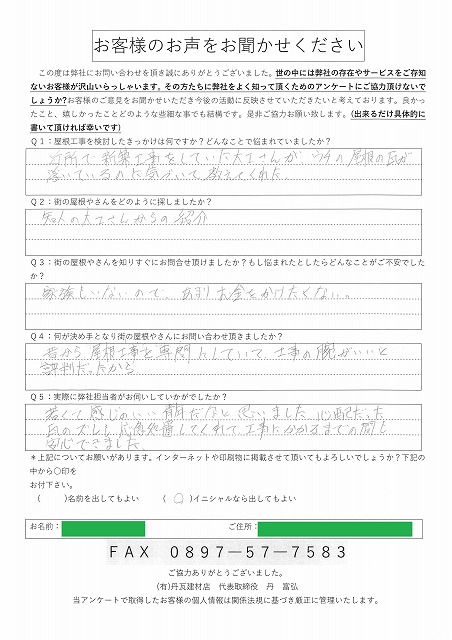 お客様のお声をお聞かせください
この度は弊社にお問い合わせを頂き誠にありがとうございました。世の中には弊社の存在やサービスをご存知
ないお客様が沢山いらっしゃいます。その方たちに弊社をよく知って頂くためのアンケートにご協力頂けないで
しょうか?お客様のご意見をお聞かせいただき今後の活動に反映させていただきたいと考えております。良かっ
たこと、嬉しかったことどのような些細な事でも結構です。是非ご協力お願い致します。(出来るだけ具体的に
書いて頂ければ幸いです)
Q1：屋根工事を検討したきっかけは何ですか？どんなことで悩まれていましたか？
近所で新築工事をしていた大工さんが、ウチの屋根の瓦が
浮いているのに気がついて、教えてくれた
Q2：街の屋根やさんをどのように探しましたか？
知人の大工さんからの紹介
Q3：街の屋根やさんを知りすぐにお問合せ頂けましたか？もし悩まれたとしたらどんなことがご不安でした
か？
家族しいないので、あまりお金をかけたくない。
Q4：何が決め手となり街の屋根やさんにお問い合わせ頂きましたか？
昔から屋根工事を専門にしていて、工事の腕がいいと
評判だったから
Q5：実際に弊社担当者がお伺いしていかがでしたか？
若くて感じのいい青年だなと思いました 心配だった
瓦のズレも応急処置してくれて工事にかかるまでの間も
安心できました
＊上記についてお願いがあります。インターネットや印刷物に掲載させて頂いてもよろしいでしょうか？下記の
中から〇印を
お付下さい。
( )名前を出してもよい ( ○ )イニシャルなら出してもよい
お名前： ご住所：
FAX 0897―57―7583
ご協力ありがとうございました。
(有)丹瓦建材店 代表取締役 丹 富弘
当アンケートで取得したお客様の個人情報は関係法規に基づき厳正に管理いたします。